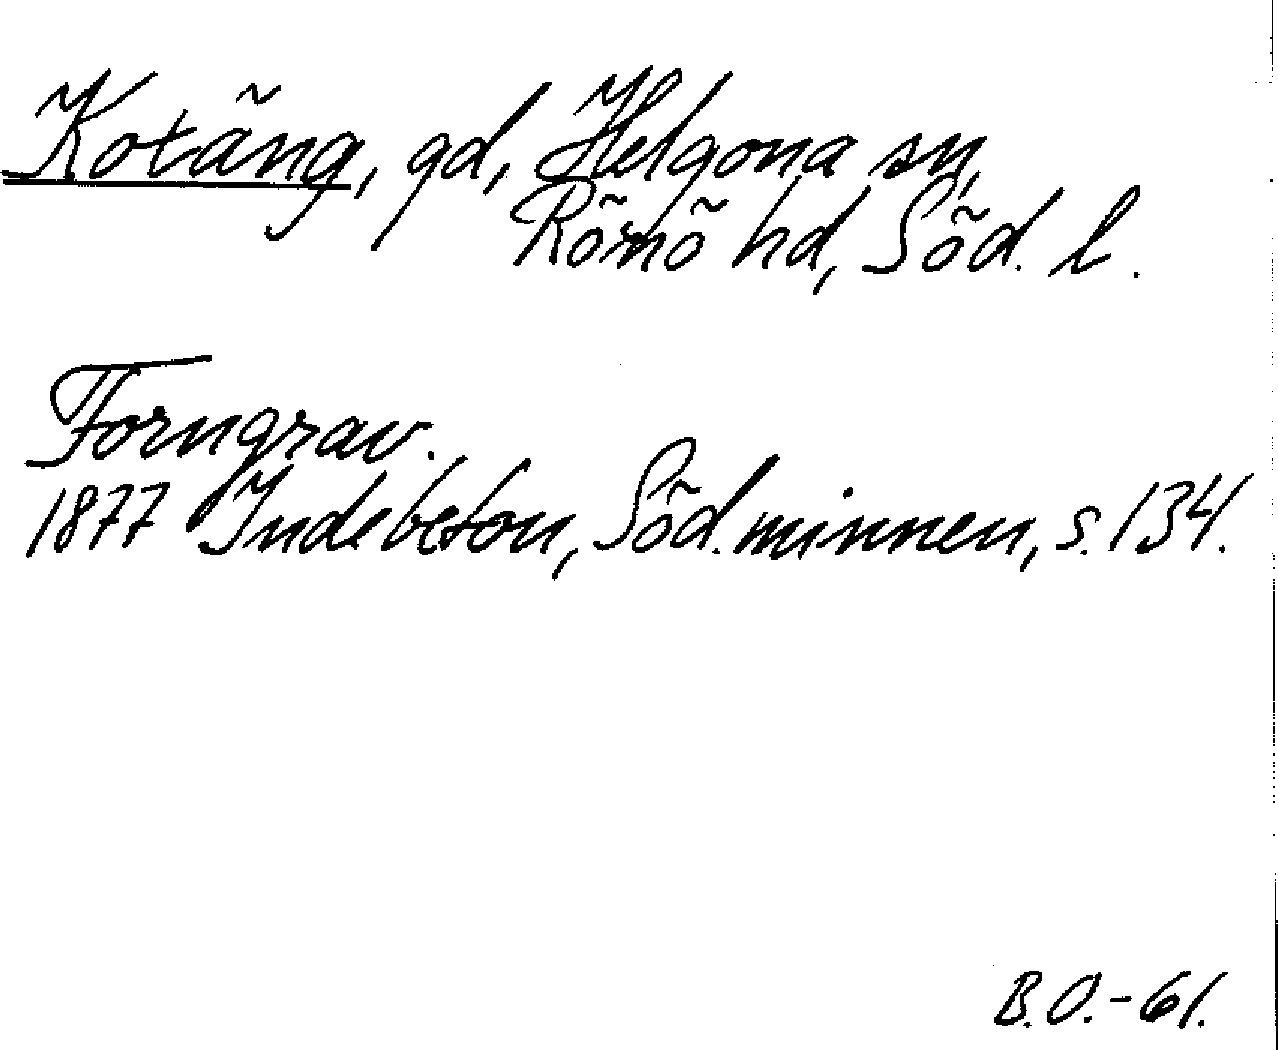 Kotäng, gd, Helgona sn,
Rönö hd, Söd. l.
Forngrav.
1877 Indebetou, Söd.minnen, s.134.
B.O.-61.